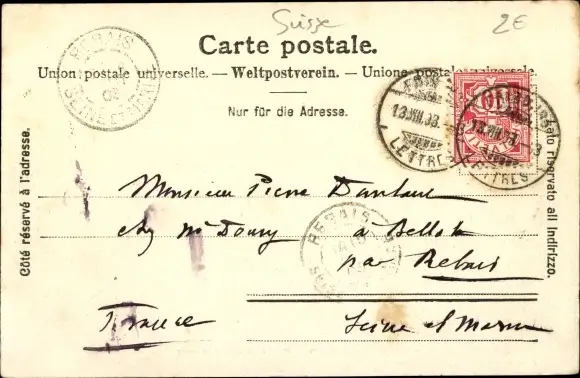 Suisse
2€
Carte postale.
Union postale universelle. — Weltpostverein. — Unione postale universale.
Nur für die Adresse.
Côté réservé à l'adresse.
Lato riservato all indirizzo.
REBAIS
SEINE ET MARNE
13.VIII.03.
LETTRES
13.VIII.03.–8
LETTRES
REBAIS
Monsieur Pierre Dantant
chez Mr Doury à Bellot
par Rebais
France Seine et Marne